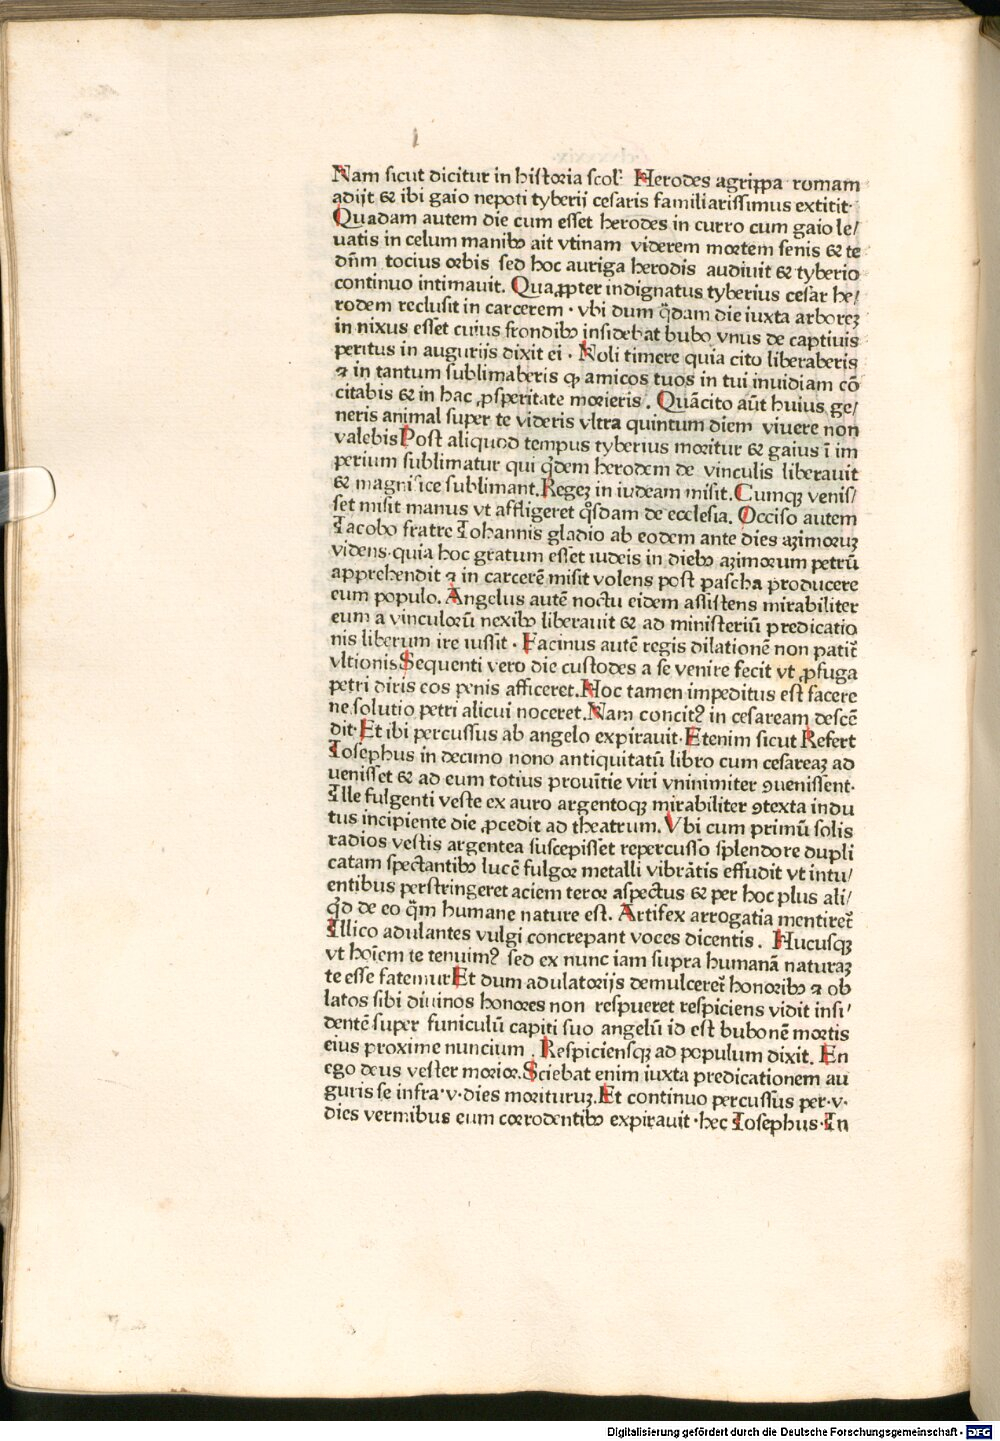 Nam sicut dicitur in historia scol' Herodes agrippa romam
adijt & ibi gaio nepoti tyberij cesaris familiarissimus extitit·
Quadam autem die cum esset herodes in curro cum gaio le/
uatis in celum manibꝫ ait vtinam viderem mortem senis & te
dñm tocius orbis sed hoc auriga herodis audiuit & tyberio
continuo intimauit. Quaꝓpter indignatus tyberius cesar he/
rodem reclusit in carcerem · vbi dum q̈dam die iuxta arboreꝫ
in nixus esset cuius frondibꝫ insidebat bubo vnus de captiuis
peritus in augurijs dixit ei · Noli timere quia cito liberaberis
⁊ in tantum sublimaberis ꝙ amicos tuos in tui inuidiam cō
citabis & in hac ꝓsperitate morieris . Quācito aūt huius ge/
neris animal super te videris vltra quintum diem viuere non
valebis Post aliquod tempus tyberius moritur & gaius ī im
perium sublimatur qui q̇dem herodem de vinculis liberauit
& magnifice sublimant. Regeꝫ in iudeam misit. Cumqꝫ venis/
set misit manus vt affligeret q̇sdam de ecclesia. Occiso autem
Iacobo fratre Iohannis gladio ab eodem ante dies aꝫimoruꝫ
videns· quia hoc gratum esset iudeis in diebꝫ aꝫimorum petrū
apprehendit ⁊ in carcerē misit volens post pascha producere
eum populo. Angelus autē noctu eidem assistens mirabiliter
eum a vinculorū nexibꝫ liberauit & ad ministeriū predicatio
nis liberum ire iussit · Facinus autē regis dilationē non patit᷑
vltionis. Sequenti vero die custodes a se venire fecit vt ꝓfuga
petri diris eos penis afficeret. Hoc tamen impeditus est facere
ne solutio petri alicui noceret. Nam concitꝰ in cesaream descē
dit· Et ibi percussus ab angelo expirauit· Etenim sicut Refert
Iosephus in decimo nono antiquitatū libro cum cesareaꝫ ad
uenisset & ad eum totius prouītie viri vninimiter ꝯuenissent·
Ille fulgenti veste ex auro argentoqꝫ mirabiliter ꝯtexta indu
tus incipiente die ꝓcedit ad theatrum. Vbi cum primū solis
radios vestis argentea suscepisset repercusso splendore dupli
catam spectantibꝫ lucē fulgor metalli vibrātis effudit vt intu/
entibus perstringeret aciem teror aspectus & per hoc plus ali/
q̇d de eo q̈m humane nature est. Artifex arrogatia mentiret᷑
Illico adulantes vulgi concrepant voces dicentis . Hucusqꝫ
vt hoīem te tenuimꝰ sed ex nunc iam supra humanā naturaꝫ
te esse fatemur Et dum adulatorijs demulceret᷑ honoribꝫ ⁊ ob
latos sibi diuinos honores non respueret respiciens vidit insi/
dentē super funiculū capiti suo angelū id est bubonē mortis
eius proxime nuncium . Respiciensqꝫ ad populum dixit. En
ego deus vester morior. Sciebat enim iuxta predicationem au
guris se infra·v·dies morituruꝫ. Et continuo percussus per·v·
dies vermibus eum corrodentibꝫ expirauit ·hec Iosephus·In
Digitalisierung gefördert durch die Deutsche Forschungsgemeinschaft - DFG